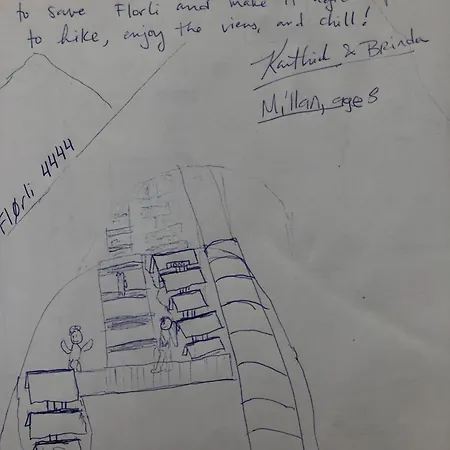 to save Florli and make it
to hike, enjoy the views, and chill!
& Brinda
Millan, age 8
Flørli 4444